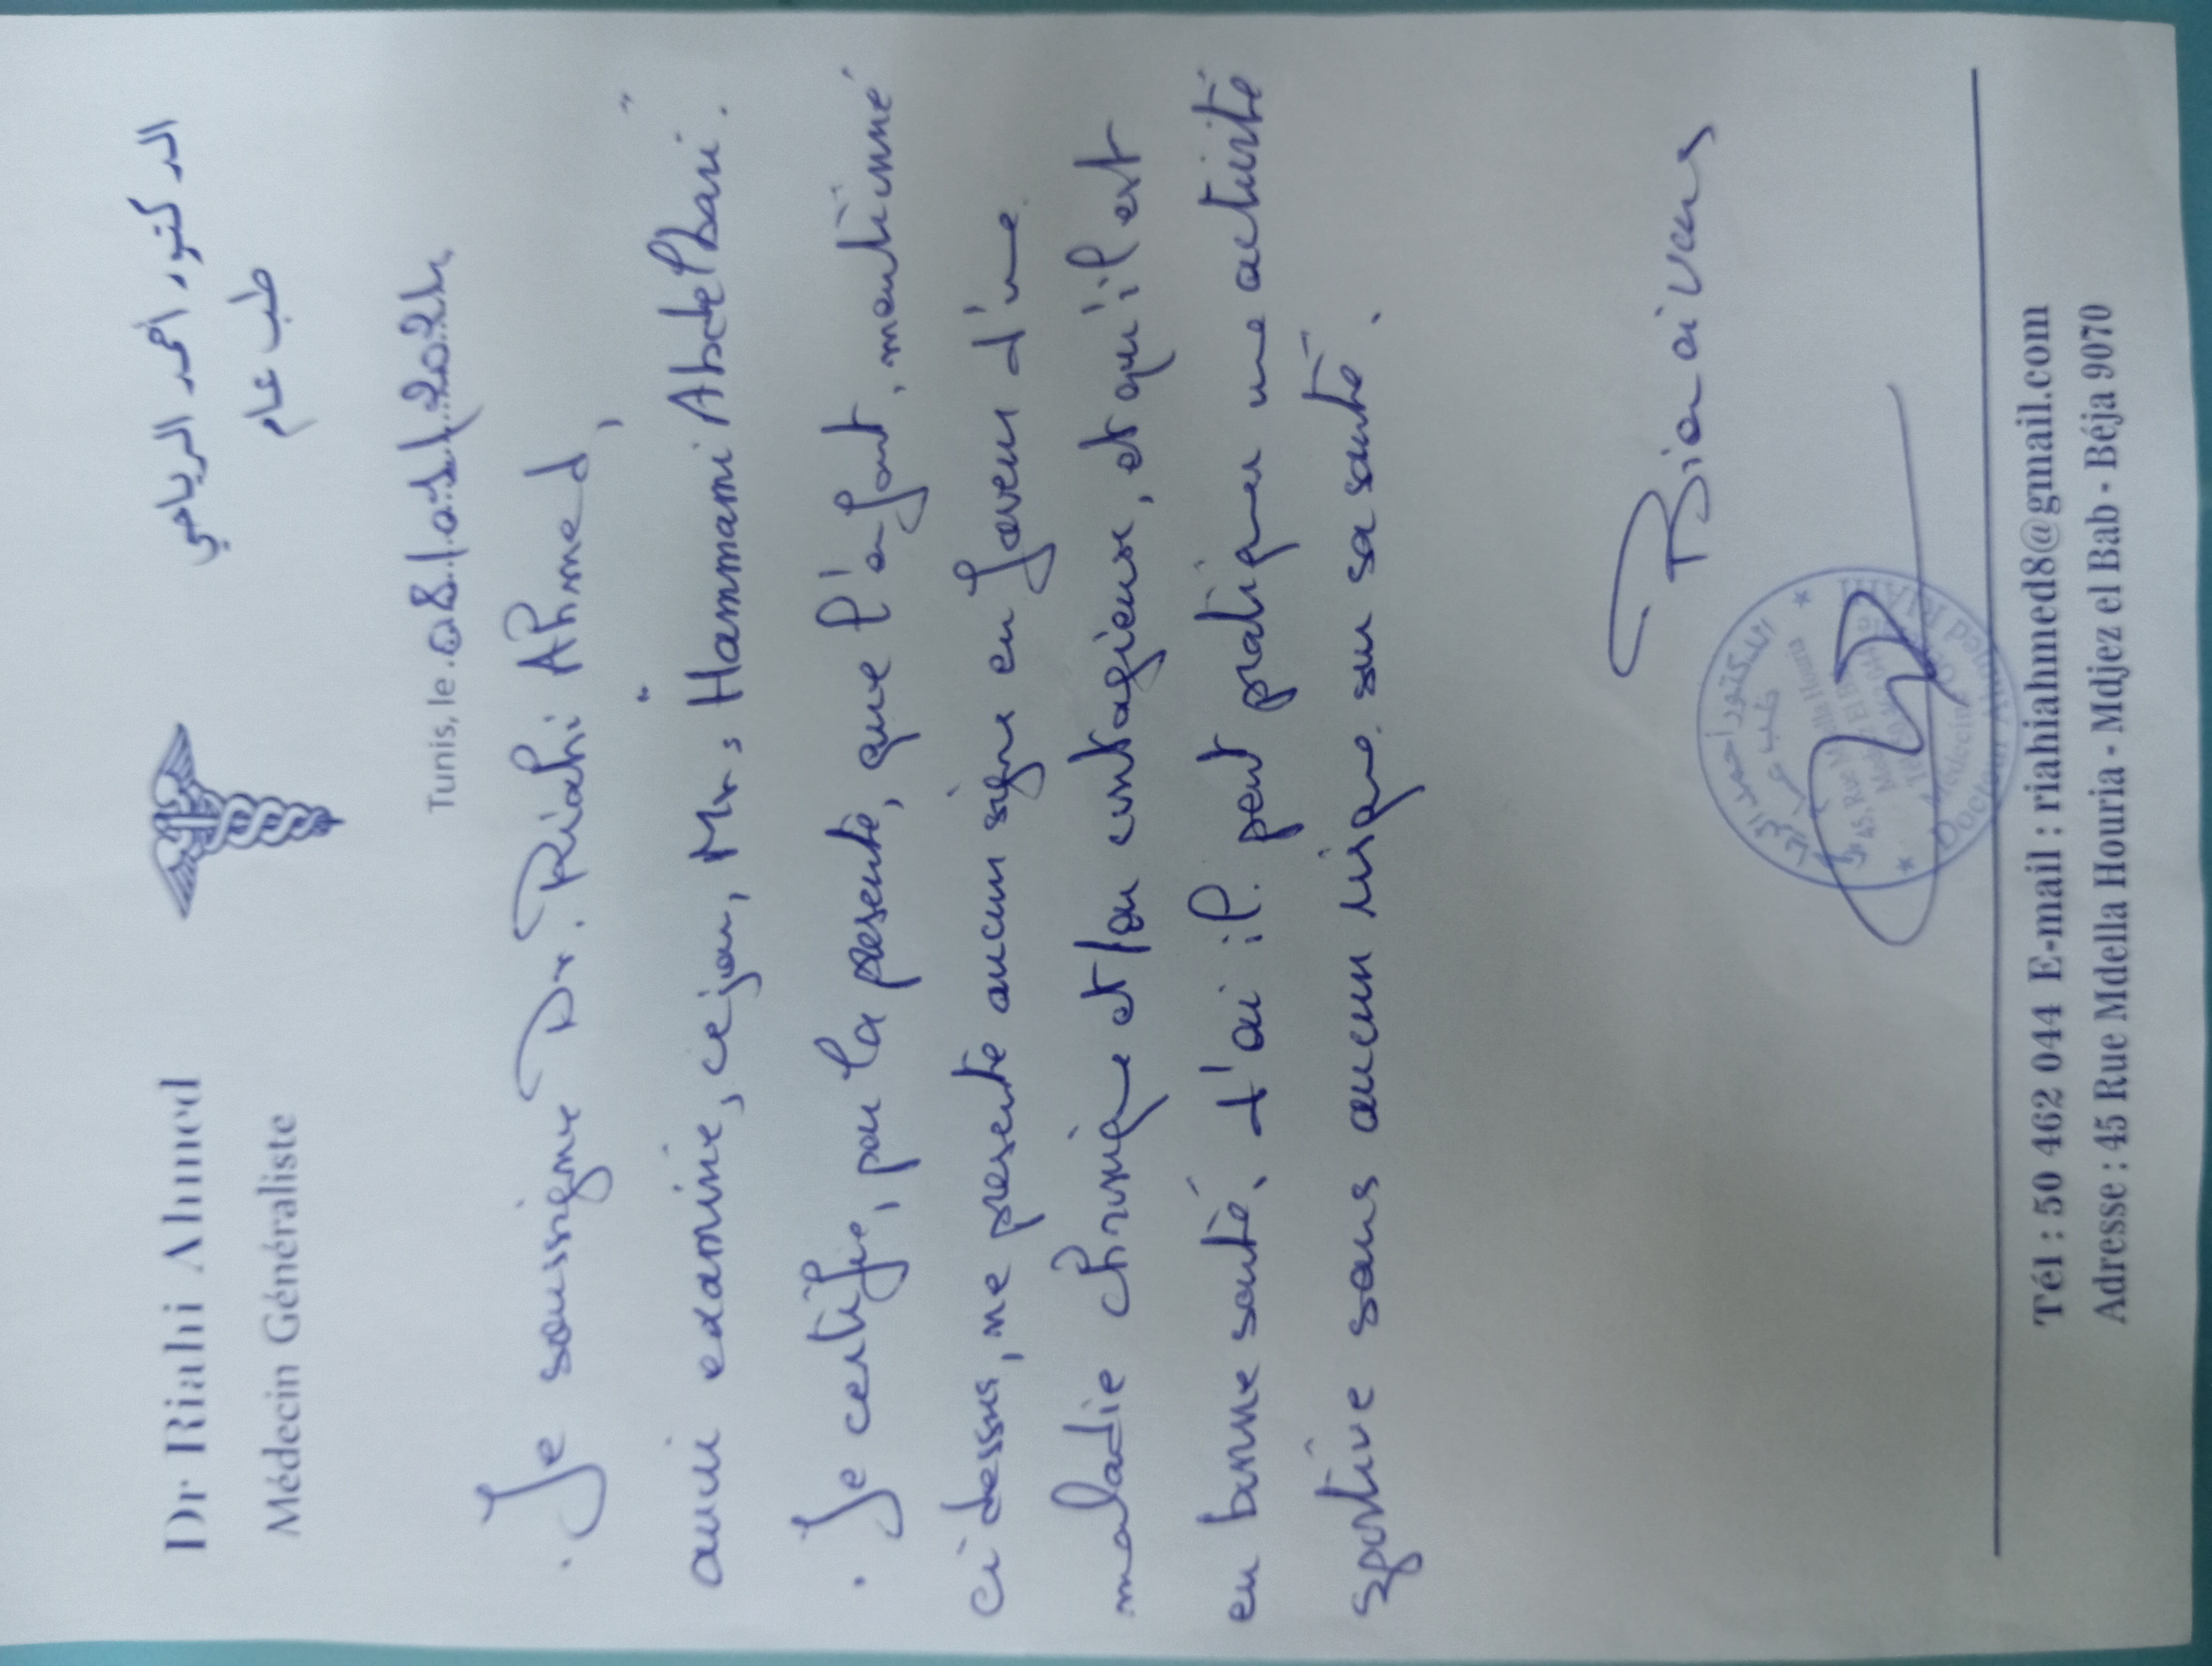 Dr Riahi Ahmed
Médecin Généraliste
الدكتور أحمد الرياحي
طب عام
Tunis, le 08/01/2024
. Je soussigne Dr. Riahi Ahmed,
avoir examiné, ce jour, Mr : "Hammami Abdelbari".
. Je certifie, par la présente, que l'enfant, mentionné
ci dessus, ne presente aucun signe en faveur d'une
maladie chronique et/ou contagieuse, et qu'il est
en bonne santé, d'où il peut pratiquer une activité
sportive sans aucun risque sur sa santé.
الدكتور أحمد الرياحي
طب عام
45, Rue Mdella Houria
Docteur Ahmed RIAHI
Tél : 50 462 044 E-mail : riahiahmed8@gmail.com
Adresse : 45 Rue Mdella Houria - Mdjez el Bab - Béja 9070